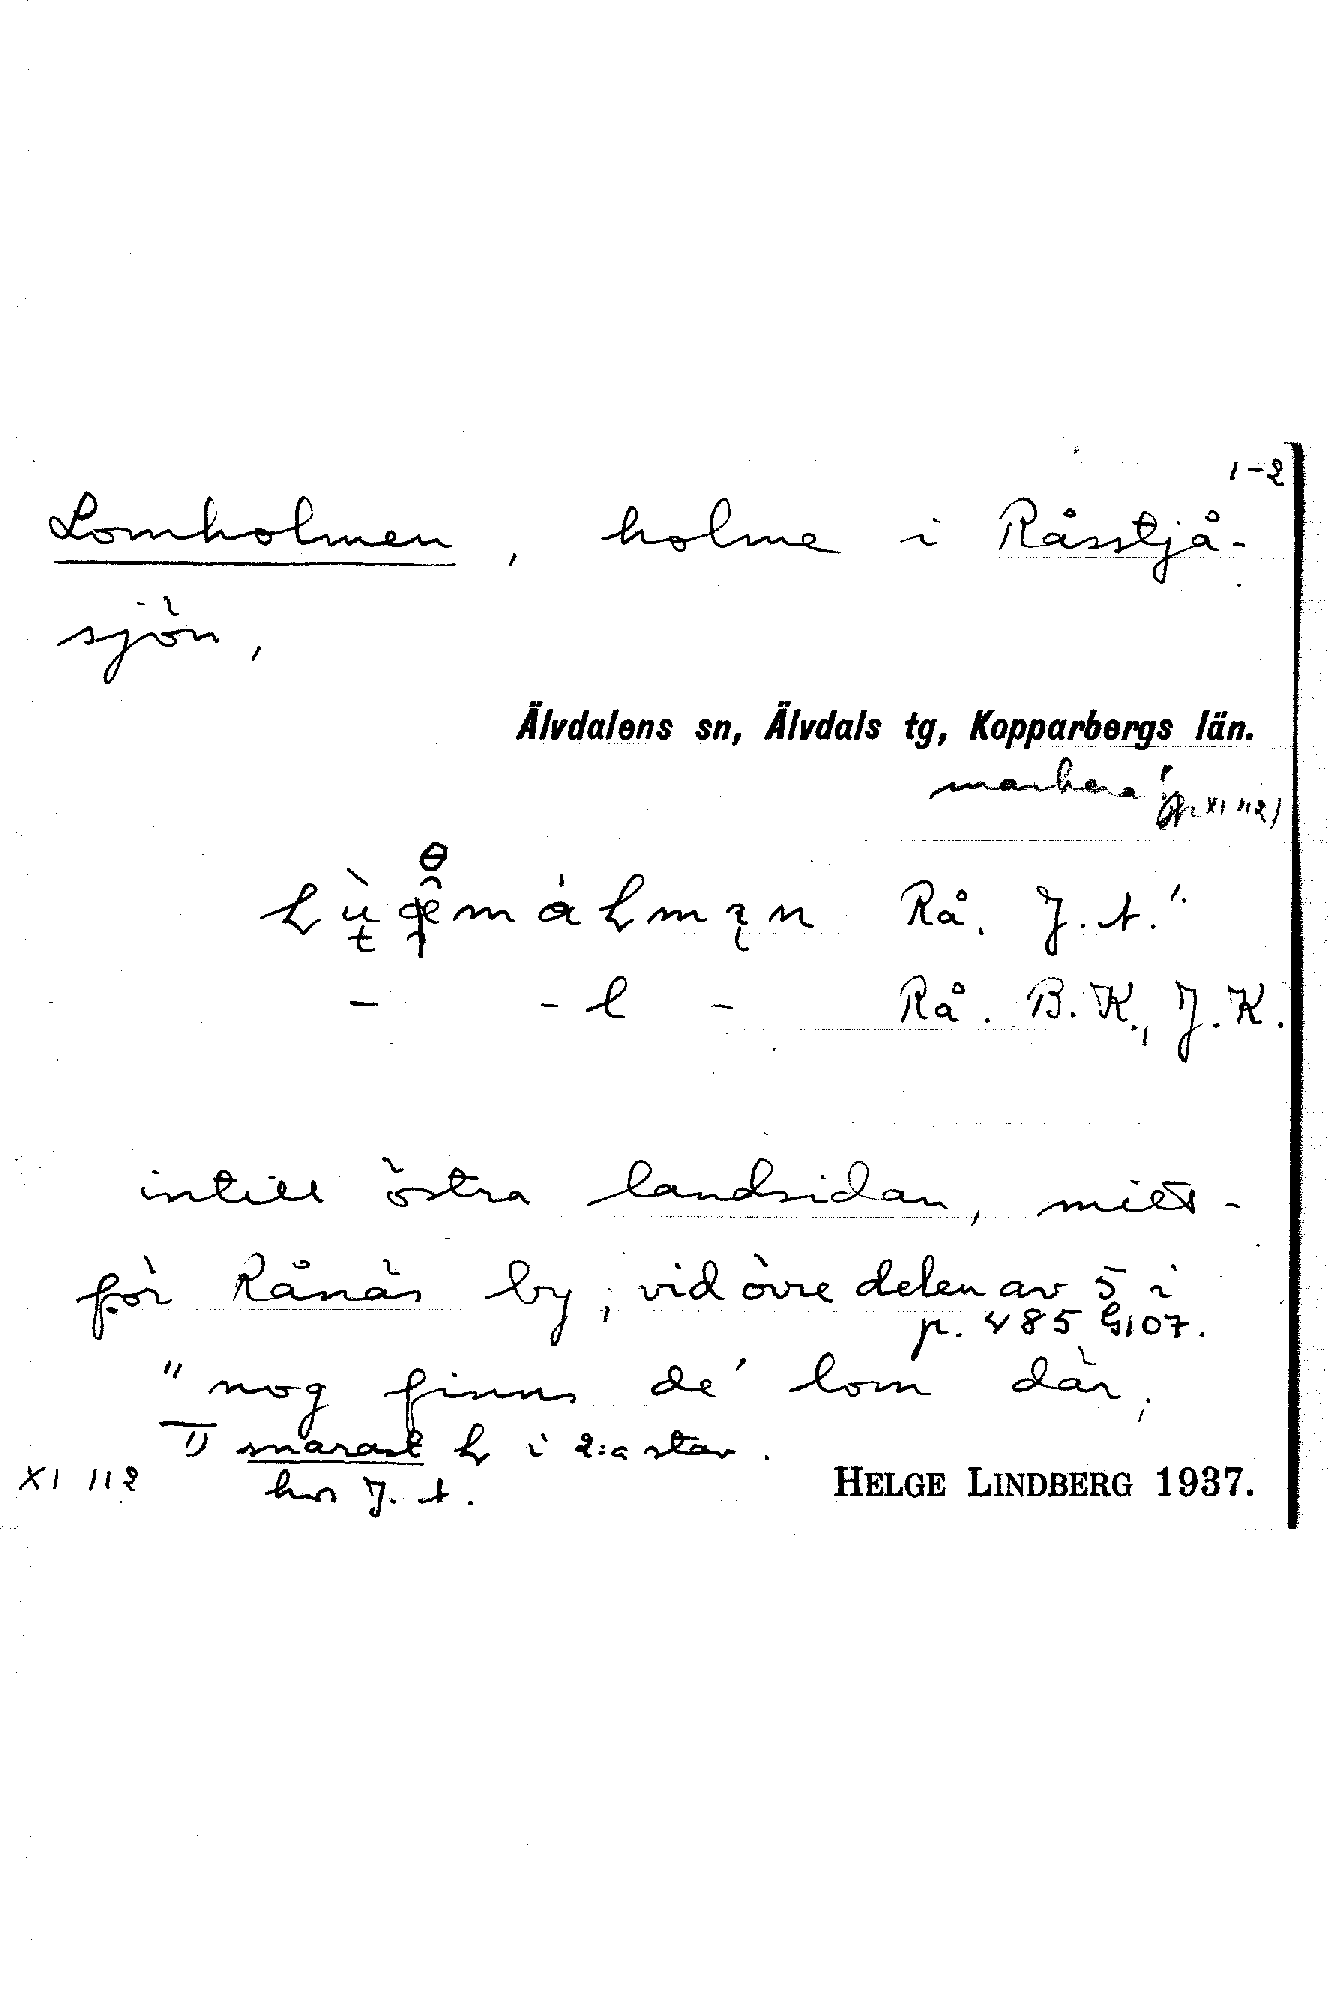 1-2
Lomholmen, holme i Råsstjå-
sjön,
Älvdalens sn, Älvdals tg, Kopparbergs län.
markera
XI 112)
Rå. J. A.
- - l - Rå. B. K., J. K.
intill östra landsidan, mitt-
för Rånäs by, vid övre delen av 5 i
p. 485 G107.
"nog finns de' lom där,
1) snarast L i 2:a stav.
XI 112 hos J. A. HELGE LINDBERG 1937.